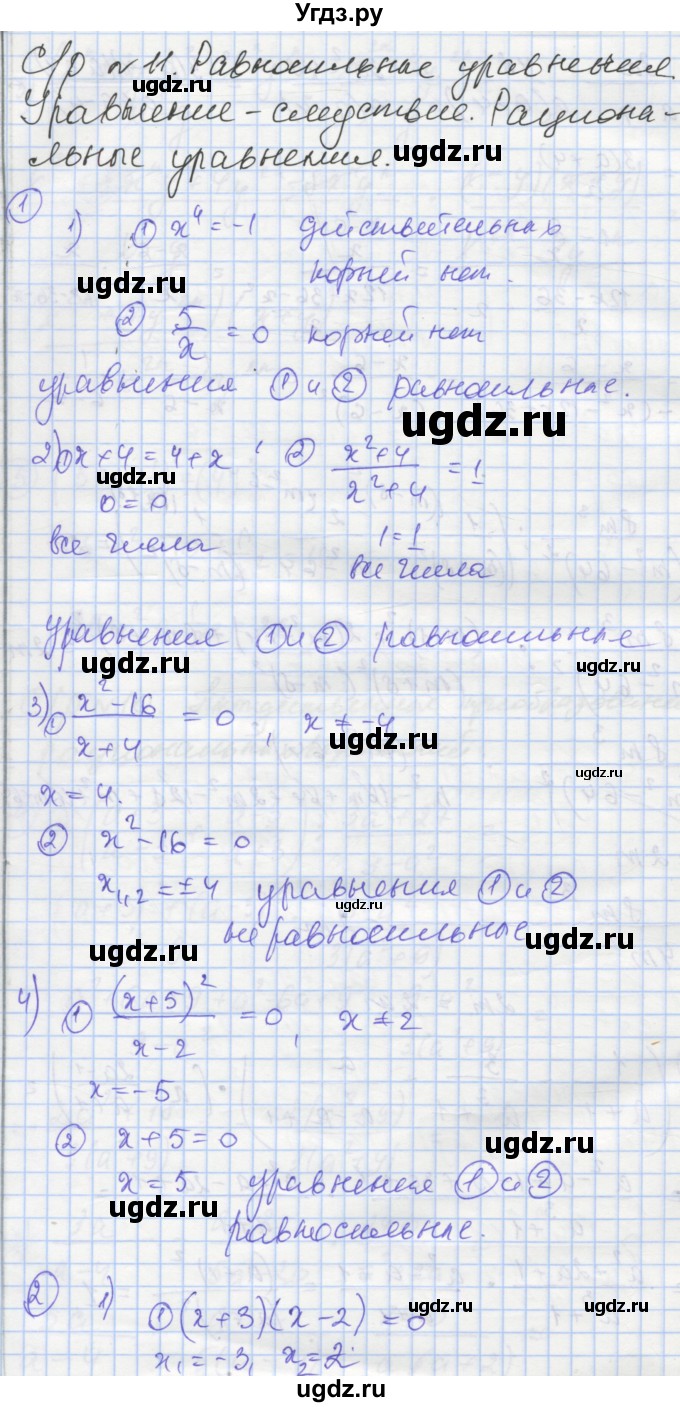 Угдз.ру
С/р №11. Равносильные уравнения.
Уравнение - следствие. Рациона-
льные уравнения.
ugdz.ru
① 1) ① x⁴ = -1 действительных
корней нет.
ugdz.ru
② 5/x = 0 корней нет
уравнения ① и ② равносильные.
ugdz.ru
2) ① x + 4 = 4 + x ; ② (x² + 4)/(x² + 4) = 1
ugdz.ru
0 = 0
1 = 1
все числа
все числа
уравнения ① и ② равносильные
ugdz.ru ugdz.ru
3) ① (x² - 16)/(x + 4) = 0, x ≠ -4
ugdz.ru
ugdz.ru
x = 4.
② x² - 16 = 0
x₁,₂ = ±4 уравнения ① и ②
ugdz.ru
не равносильные
ugdz.ru ugdz.ru
4) ① (x + 5)²/(x - 2) = 0, x ≠ 2
x = -5
② x + 5 = 0
ugdz.ru
x = 5 уравнения ① и ②
ugdz.ru
равносильные.
② 1) ① (x + 3)(x - 2) = 0
ugdz.ru ugdz.ru
x₁ = -3, x₂ = 2.
ugdz.ru